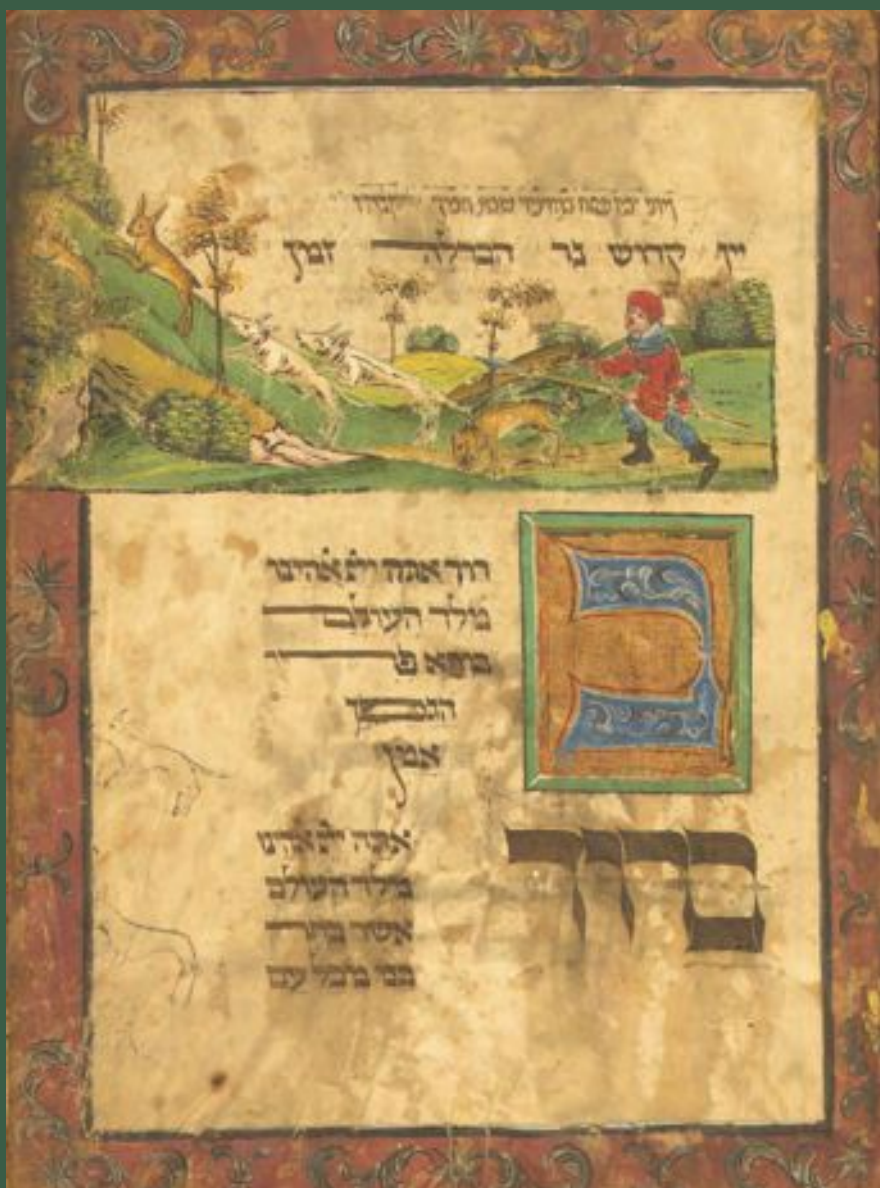 פסח שבת
יין קדוש נר הבדלה זמן
ברוך אתה ייי אלהינו
מלך העולם
בורא פרי
הגפן
אמן
ברוך אתה ייי אלהינו
מלך העולם
אשר בחר
בנו מכל עם